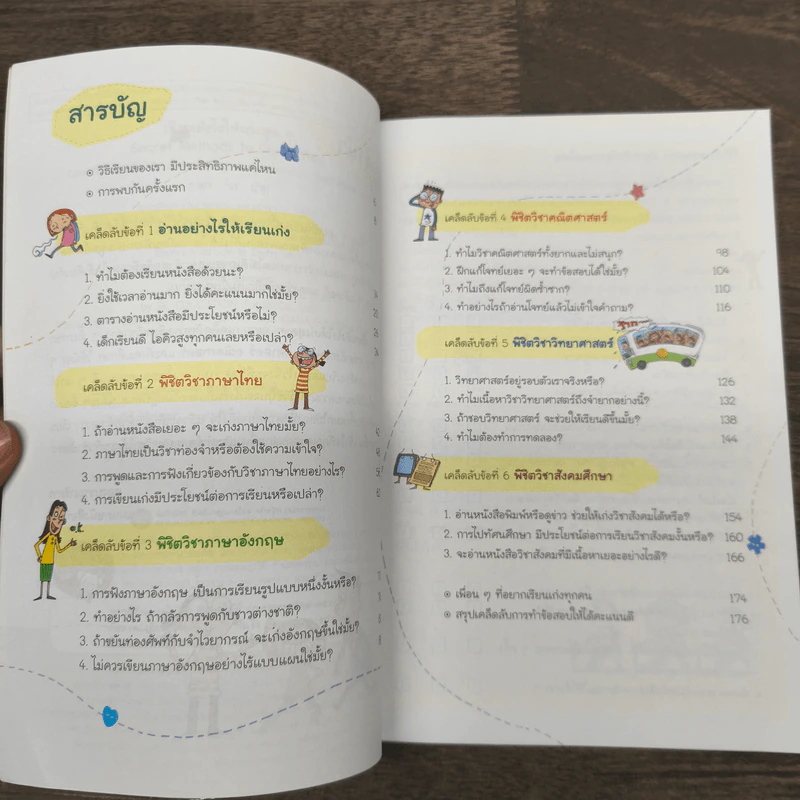 สารบัญ
๏ วิธีเรียนของเรา มีประสิทธิภาพแค่ไหน
๏ การพบกันครั้งแรก
เคล็ดลับข้อที่ 1 อ่านอย่างไรให้เรียนเก่ง
1. ทำไมต้องเรียนหนังสือด้วยนะ?
2. ยิ่งใช้เวลาอ่านมาก ยิ่งได้คะแนนมากใช่มั้ย?
3. ตารางอ่านหนังสือมีประโยชน์หรือไม่?
4. เด็กเรียนดี ไอคิวสูงทุกคนเลยหรือเปล่า?
เคล็ดลับข้อที่ 2 พิชิตวิชาภาษาไทย
1. ถ้าอ่านหนังสือเยอะ ๆ จะเก่งภาษาไทยมั้ย?
2. ภาษาไทยเป็นวิชาท่องจำหรือต้องใช้ความเข้าใจ?
3. การพูดและการฟังเกี่ยวข้องกับวิชาภาษาไทยอย่างไร?
4. การเขียนเก่งมีประโยชน์ต่อการเรียนหรือเปล่า?
เคล็ดลับข้อที่ 3 พิชิตวิชาภาษาอังกฤษ
1. การฟังภาษาอังกฤษ เป็นการเรียนรูปแบบหนึ่งงั้นหรือ?
2. ทำอย่างไร ถ้ากลัวการพูดกับชาวต่างชาติ?
3. ถ้าขยันท่องศัพท์กับจำไวยากรณ์ จะเก่งอังกฤษขึ้นใช่มั้ย?
4. ไม่ควรเขียนภาษาอังกฤษอย่างไร้แบบแผนใช่มั้ย?
เคล็ดลับข้อที่ 4 พิชิตวิชาคณิตศาสตร์
1. ทำไมวิชาคณิตศาสตร์ทั้งยากและไม่สนุก? 98
2. ฝึกแก้โจทย์เยอะ ๆ จะทำข้อสอบได้ใช่มั้ย? 104
3. ทำไมถึงแก้โจทย์ผิดซ้ำซาก? 110
4. ทำอย่างไรถ้าอ่านโจทย์แล้วไม่เข้าใจคำถาม? 116
เคล็ดลับข้อที่ 5 พิชิตวิชาวิทยาศาสตร์
1. วิทยาศาสตร์อยู่รอบตัวเราจริงหรือ? 126
2. ทำไมเนื้อหาวิชาวิทยาศาสตร์ถึงจำยากอย่างนี้? 132
3. ถ้าชอบวิทยาศาสตร์ จะช่วยให้เรียนดีขึ้นมั้ย? 138
4. ทำไมต้องทำการทดลอง? 144
เคล็ดลับข้อที่ 6 พิชิตวิชาสังคมศึกษา
1. อ่านหนังสือพิมพ์หรือดูข่าว ช่วยให้เก่งวิชาสังคมได้หรือ? 154
2. การไปทัศนศึกษา มีประโยชน์ต่อการเรียนวิชาสังคมงั้นหรือ? 160
3. จะอ่านหนังสือวิชาสังคมที่มีเนื้อหาเยอะอย่างไรดี? 166
๏ เพื่อน ๆ ที่อยากเรียนเก่งทุกคน 174
๏ สรุปเคล็ดลับการทำข้อสอบให้ได้คะแนนดี 176